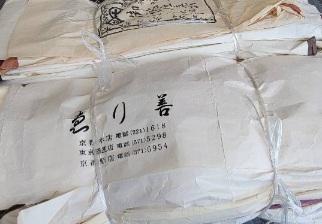 ゑり善
京都本店電話(221)1618
東京銀座店電話(571)5298
京都駅店電話(371)5954